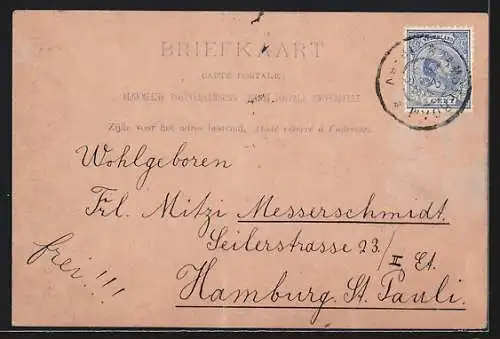 BRIEFKAART
CARTE POSTALE
ALGEMEENE POSTVEREENIGING UNION POSTALE UNIVERSELLE
Zijde voor het adres bestemd. Côté réservé à l'adresse.
NEDERLAND
5 CENT
Wohlgeboren
Frl. Mitzi Messerschmidt.
Seilerstrasse 23/II Et.
frei!!!
Hamburg. St. Pauli.